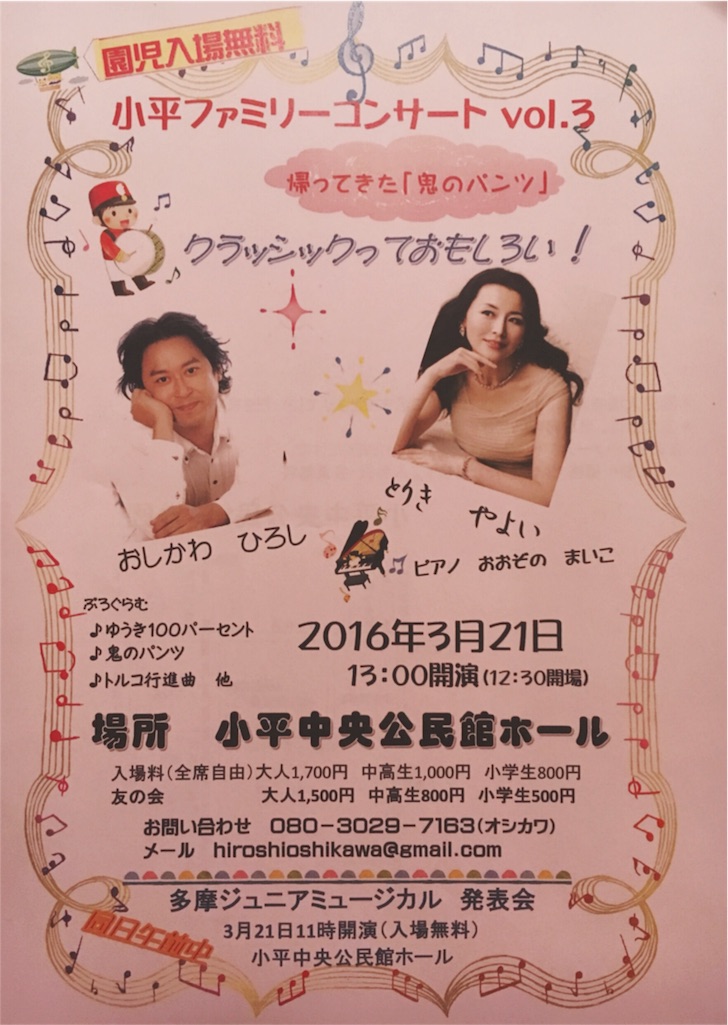 園児入場無料
小平ファミリーコンサート vol.3
帰ってきた「鬼のパンツ」
クラッシックっておもしろい！
おしかわ ひろし
とりき やよい
ピアノ おおぞの まいこ
ぷろぐらむ
♪ゆうき100パーセント
♪鬼のパンツ
♪トルコ行進曲 他
2016年3月21日
13:00開演(12:30開場)
場所 小平中央公民館ホール
入場料(全席自由)大人1,700円 中高生1,000円 小学生800円
友の会 大人1,500円 中高生800円 小学生500円
お問い合わせ 080-3029-7163(オシカワ)
メール hiroshioshikawa@gmail.com
多摩ジュニアミュージカル 発表会
同日午前中
3月21日11時開演(入場無料)
小平中央公民館ホール